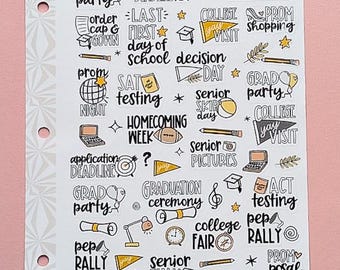 party
order
cap &
GOWN
LAST
FIRST
day of
school
COLLEGE
VISIT
PROM
shopping
decision
DAY
prom
NIGHT
SAT
testing
senior
SKIP
day
GRAD
party
HOMECOMING
WEEK
COLLEGE
yay
VISIT
application
DEADLINE
?
senior
PICTURES
GRAD
party
GRADUATION
ceremony
ACT
testing
pep
RALLY
college
FAIR
pep
RALLY
senior
PROM